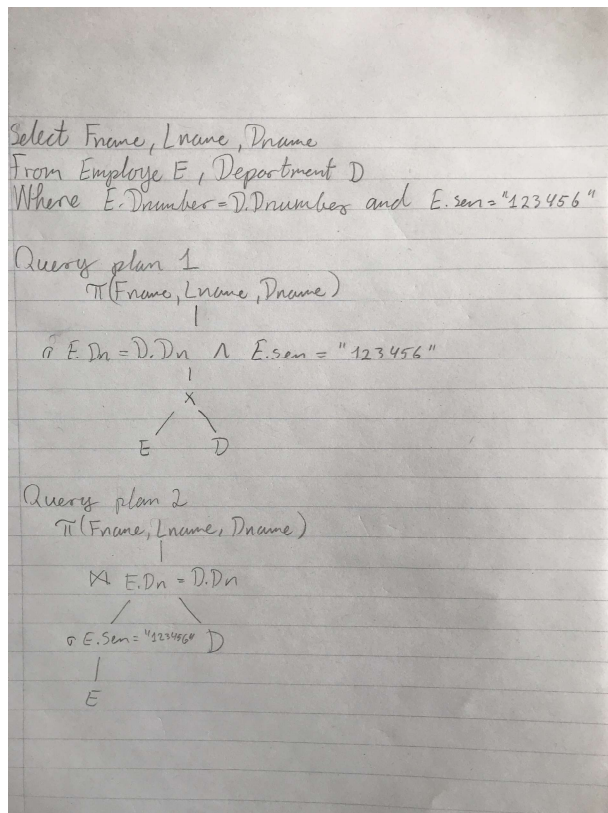 Select Fname, Lname, Dname
From Employe E, Department D
Where E.Dnumber = D.Dnumber and E.ssn = "123456"
Query plan 1
π(Fname, Lname, Dname)
σ E.Dn = D.Dn ∧ E.ssn = "123456"
X
E D
Query plan 2
π(Fname, Lname, Dname)
⋈ E.Dn = D.Dn
σ E.Ssn = "123456" D
E